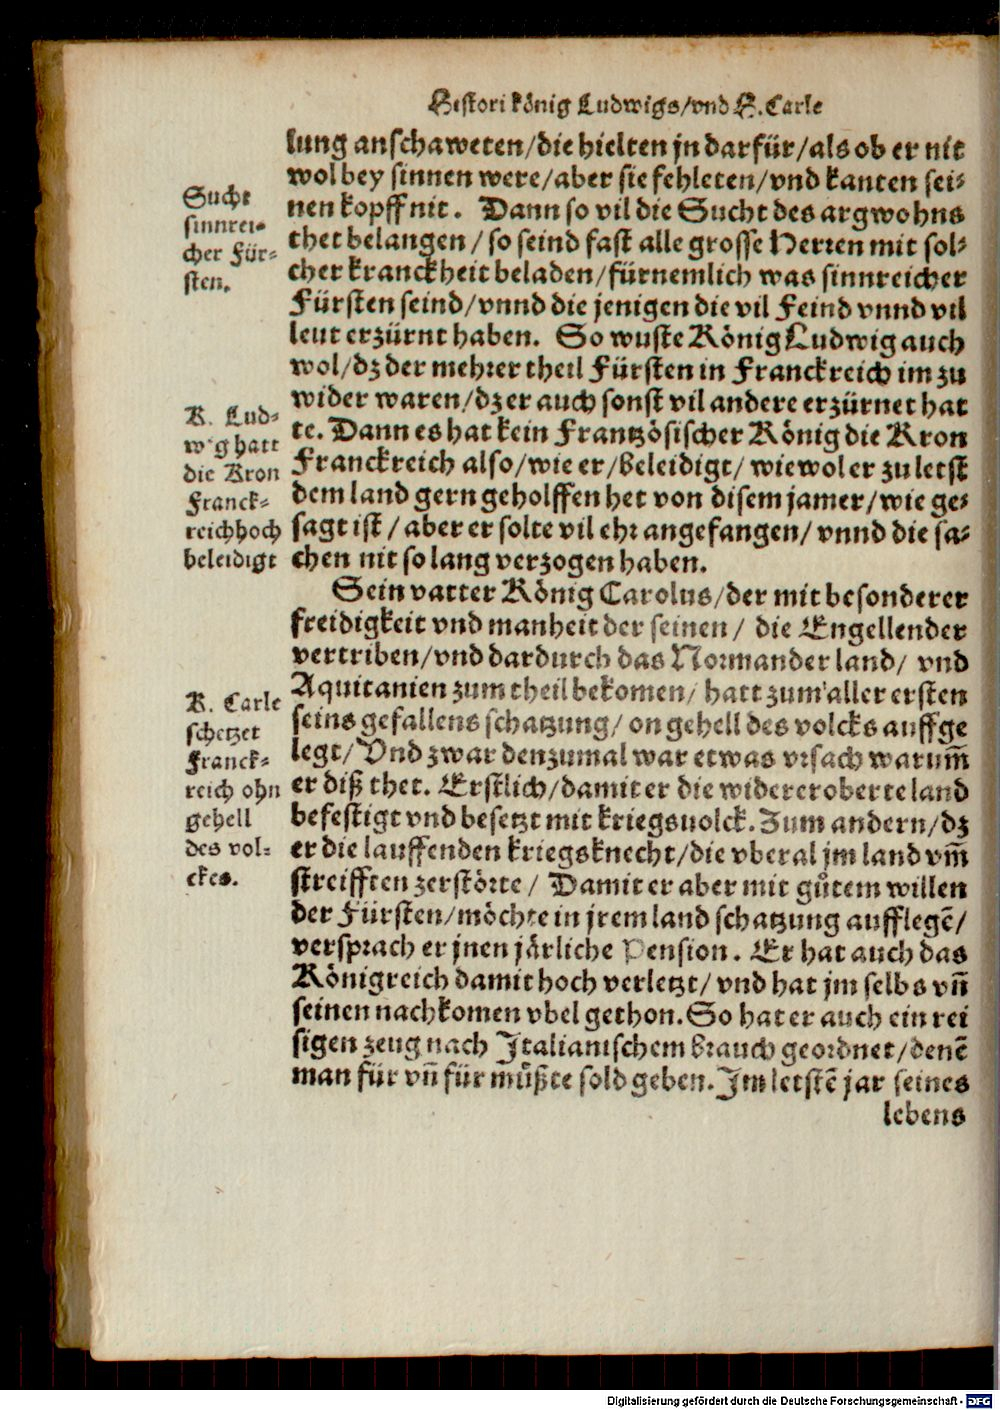 Histori kônig Ludwigs/vnd K. Carle
lung anschaweten/die hielten jn darfür/als ob er nit
wol bey sinnen were/aber sie fehleten/vnd kanten sei-
nen kopff nit. Dann so vil die Sucht des argwohns
thet belangen/so seind fast alle grosse Herren mit sol-
cher kranckheit beladen/fürnemlich was sinnreicher
Fürsten seind/vnnd die jenigen die vil Feind vnnd vil
leut erzürnt haben. So wuste König Ludwig auch
wol/dz der mehrer theil Fürsten in Franckreich im zu
wider waren/dz er auch sonst vil andere erzürnet hat
te. Dann es hat kein Frantzösischer König die Kron
Franckreich also/wie er/beleidigt/wiewol er zu letst
dem land gern geholffen het von disem jamer/wie ge-
sagt ist/aber er solte vil ehr angefangen/vnnd die sa-
chen nit so lang verzogen haben.
Sein vatter König Carolus/der mit besonderer
freidigkeit vnd manheit der seinen/ die Engellender
vertriben/vnd dardurch das Normander land/ vnd
Aquitanien zum theil bekomen/ hatt zum aller ersten
seins gefallens schatzung/ on gehell des volcks auffge
legt/ Vnd zwar denzumal war etwas vrsach warum̃
er diß thet. Erstlich/damit er die widereroberte land
befestigt vnd besetzt mit kriegsuolck. Zum andern/dz
er die lauffenden kriegsknecht/die vberal jm land vm̃
streifften zerstörte/ Damit er aber mit gůtem willen
der Fürsten/möchte in jrem land schatzung aufflegẽ/
versprach er jnen järliche Pension. Er hat auch das
Königreich damit hoch verletzt/ vnd hat jm selbs vñ
seinen nachkomen vbel gethon. So hat er auch ein rei
sigen zeug nach Italianischem brauch geordnet/denẽ
man für vñ für můßte sold geben. Im letstẽ jar seines
lebens
Sucht
sinnrei-
cher Für-
sten.
K. Lud-
wig hatt
die Kron
Franck-
reich hoch
beleidigt
K. Carle
schetzet
Franck-
reich ohn
gehell
des vol-
ckes.
Digitalisierung gefördert durch die Deutsche Forschungsgemeinschaft - DFG